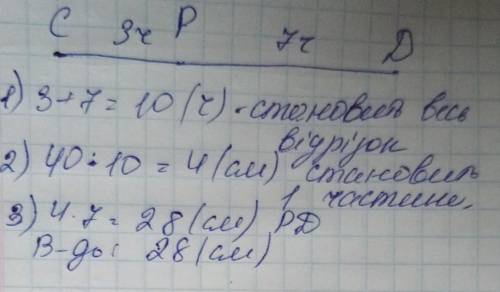 C 3ч P 7ч D
1) 3+7=10 (ч) - становить весь
відрізок
2) 40:10=4 (см) становить
1 частина.
3) 4·7=28 (см) PD
В-дь: 28 (см)